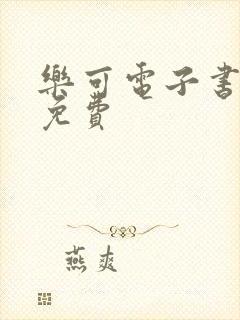 樂可電子書
免費
燕爽